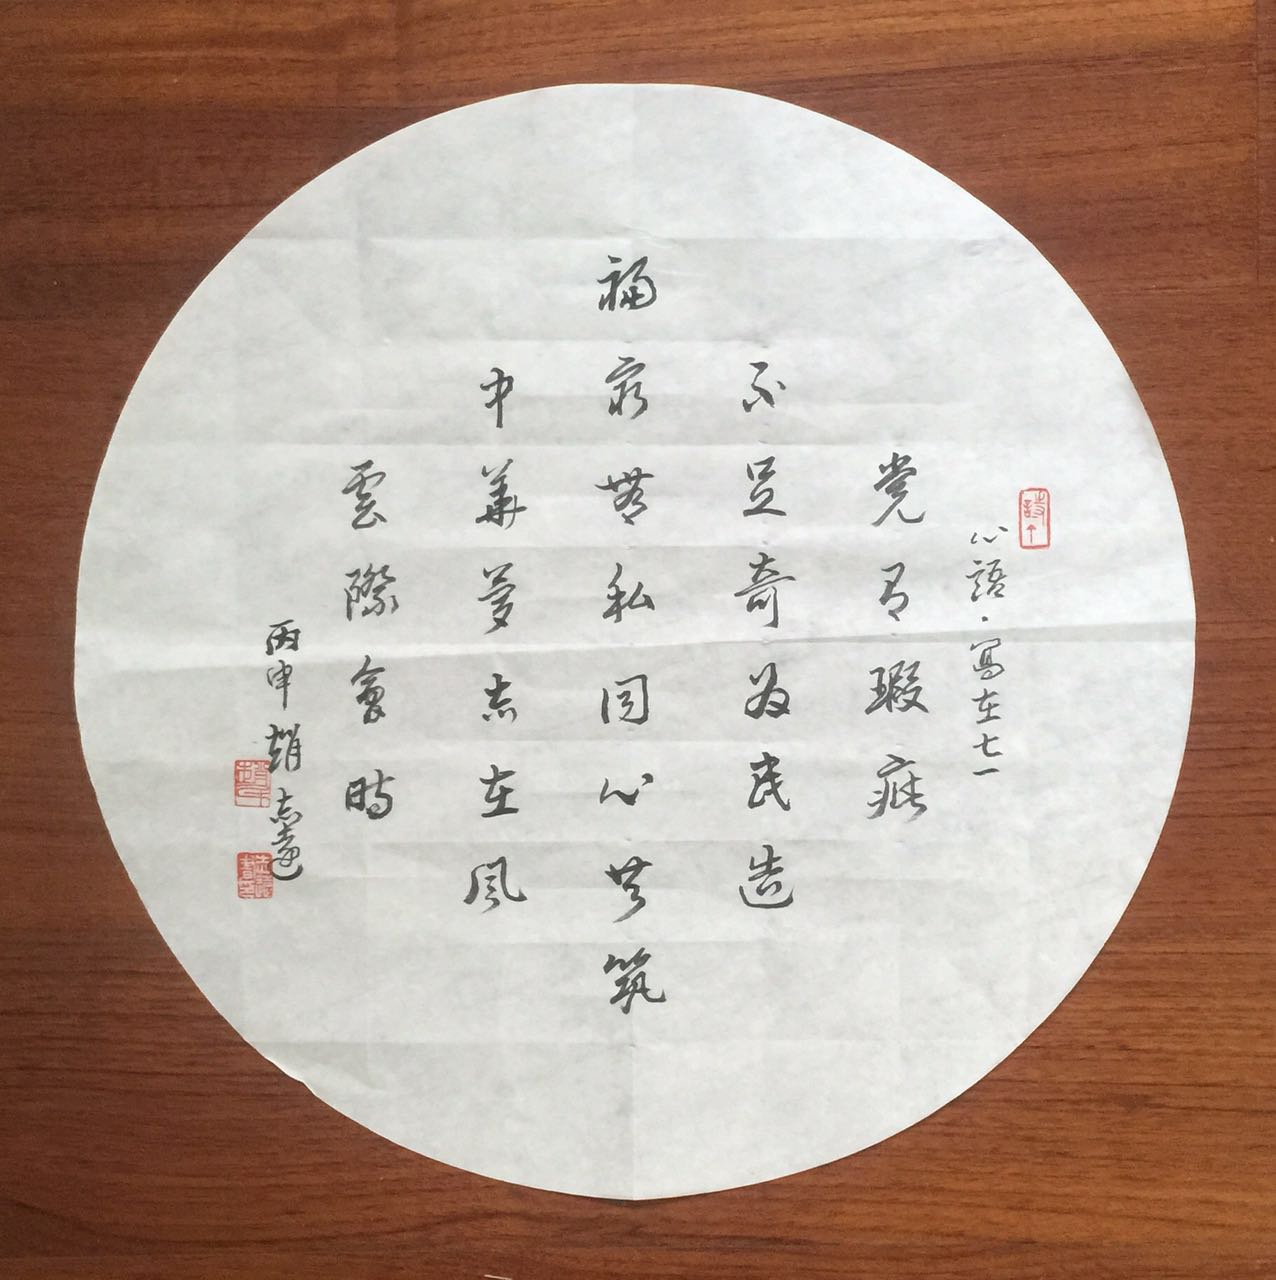 心語·寫在七一
党有瑕疵
不足奇為民造
福最無私同心共筑
中華夢志在風
雲際會時
丙申趙志遠